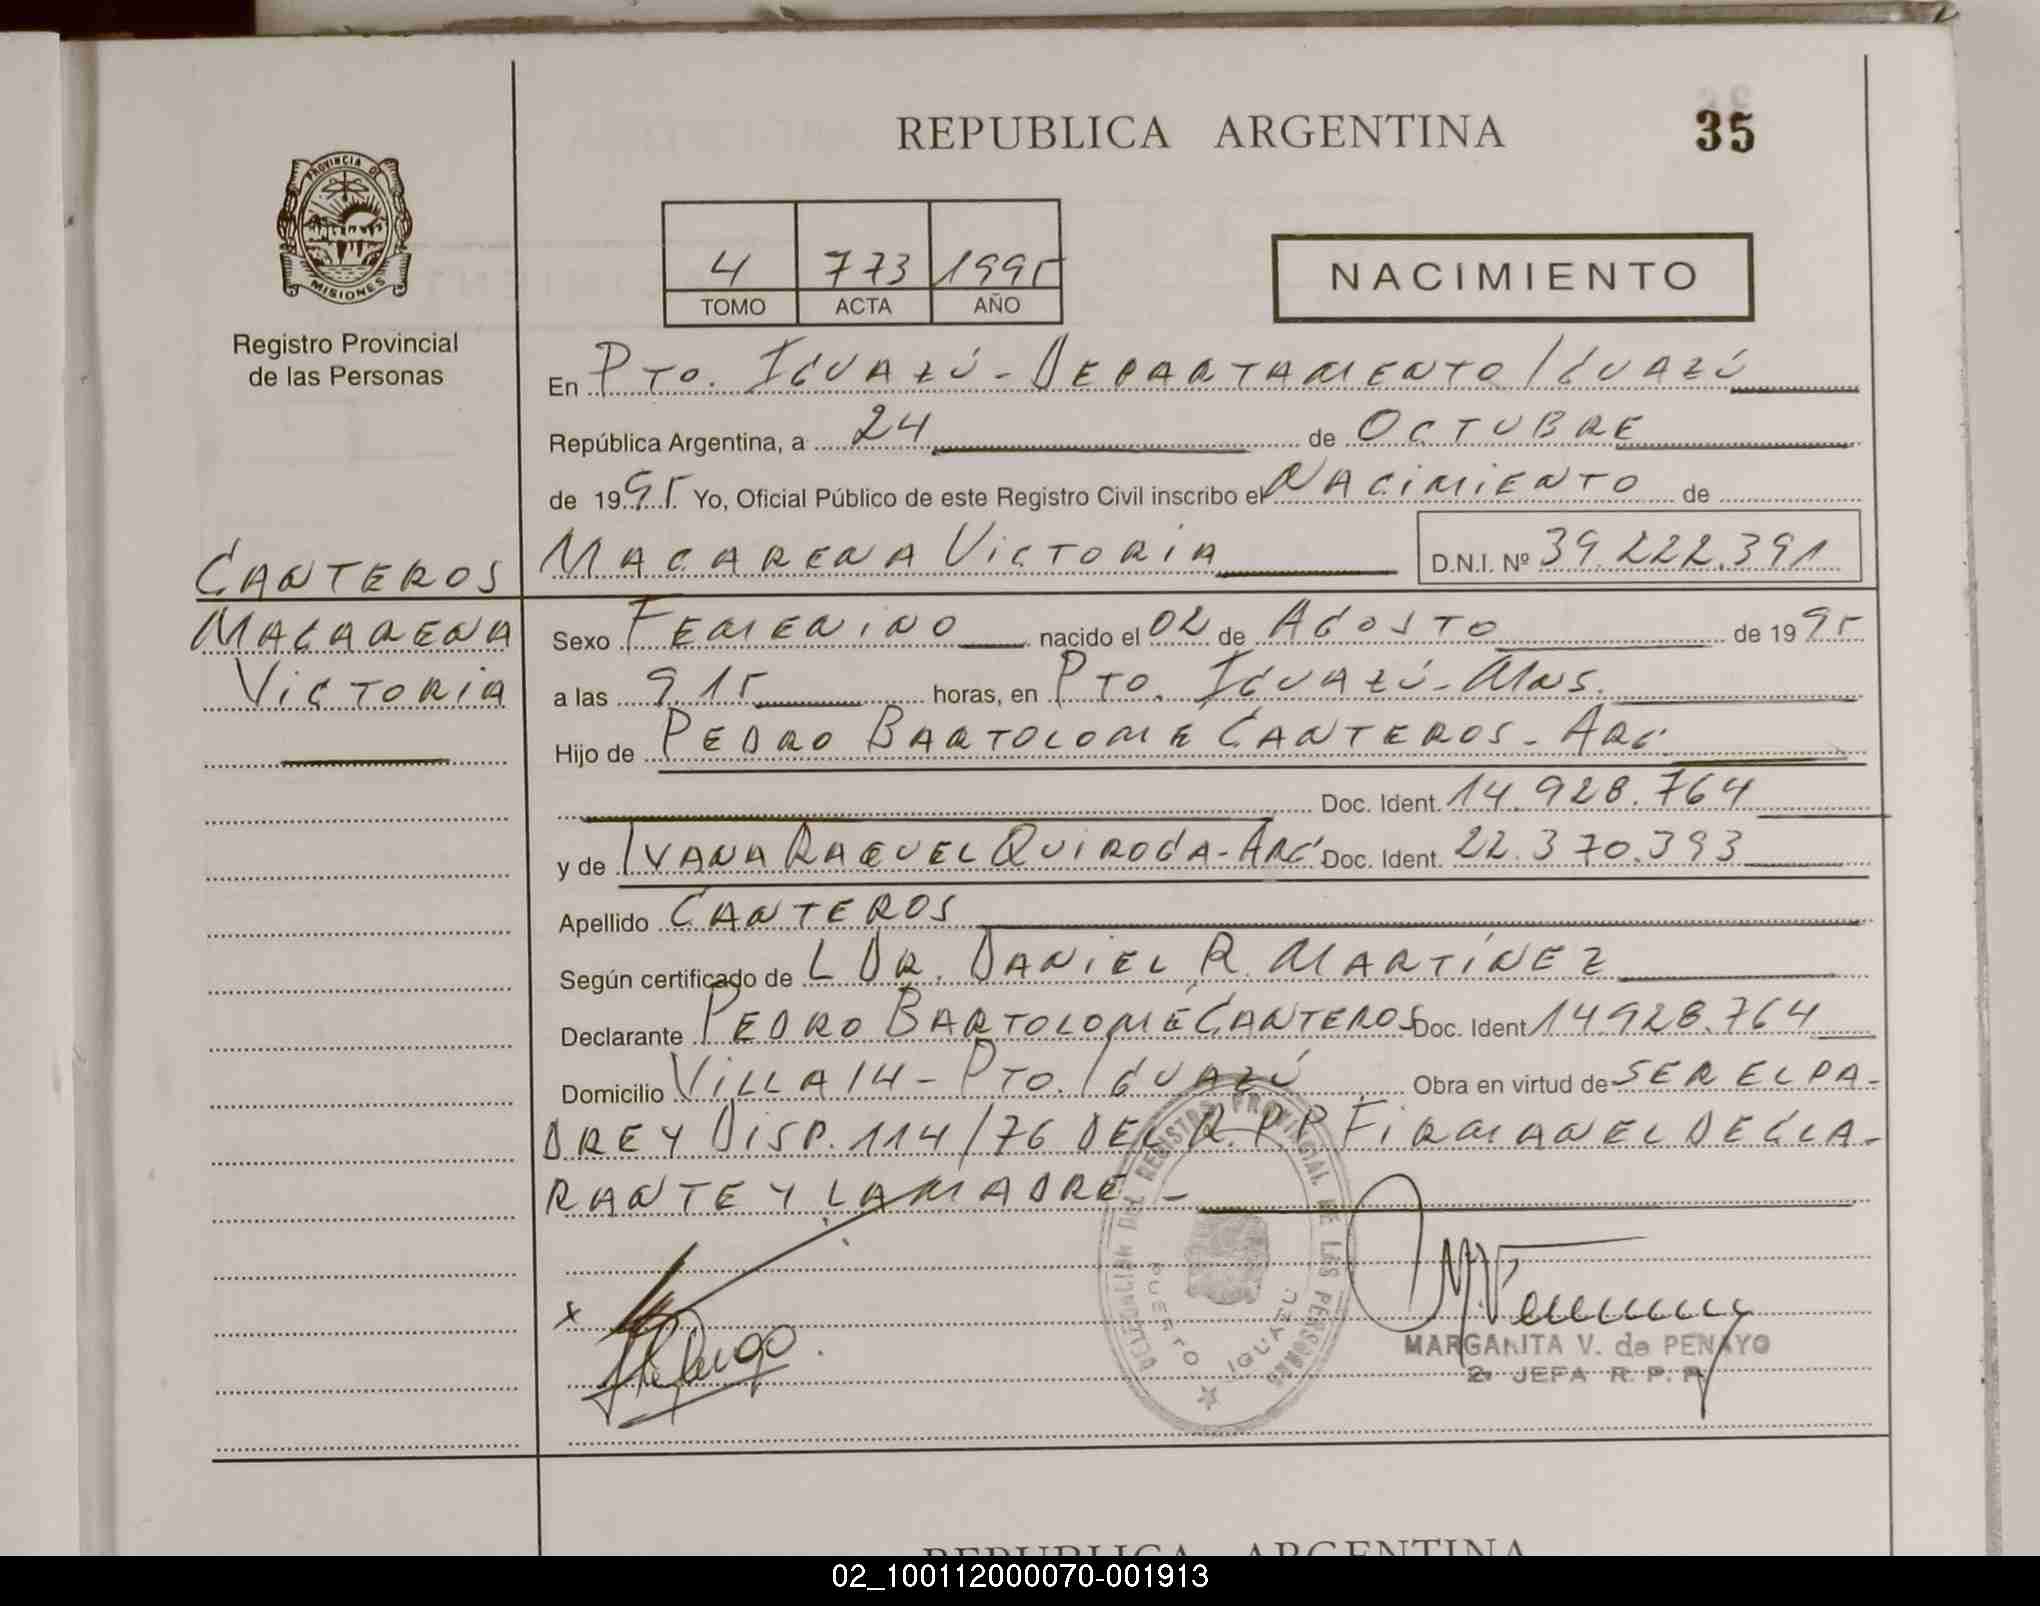 REPUBLICA ARGENTINA
35
PROVINCIA DE
MISIONES
Registro Provincial
de las Personas
4 773 1995
TOMO ACTA AÑO
NACIMIENTO
En PTO. IGUAZÚ - DEPARTAMENTO IGUAZÚ
República Argentina, a 24 de OCTUBRE
de 1995 Yo, Oficial Público de este Registro Civil inscribo el NACIMIENTO de
MACARENA VICTORIA D.N.I. Nº 39.222.391
CANTEROS
MACARENA
VICTORIA
Sexo FEMENINO nacido el 02 de AGOSTO de 1995
a las 9 15 horas, en PTO. IGUAZÚ - MNS.
Hijo de PEDRO BARTOLOME CANTEROS - ARG.
Doc. Ident. 14.928.764
y de IVANA RAQUEL QUIROGA - ARG. Doc. Ident. 22.370.393
Apellido CANTEROS
Según certificado de L DR. DANIEL R. MARTÍNEZ
Declarante PEDRO BARTOLOMÉ CANTEROS Doc. Ident 14928.764
Domicilio VILLA 14 - PTO. IGUAZÚ Obra en virtud de SER EL PA-
DRE Y DISP. 114/76 DEL R.P.P. FIRMAN EL DECLA-
RANTE Y LA MADRE -
DELEGACION DEL REGISTRO PROVINCIAL DE LAS PERSONAS
PUERTO IGUAZU
x
MARGARITA V. de PENAYO
2ª JEFA R. P. P.
REPUBLICA ARGENTINA
02_100112000070-001913